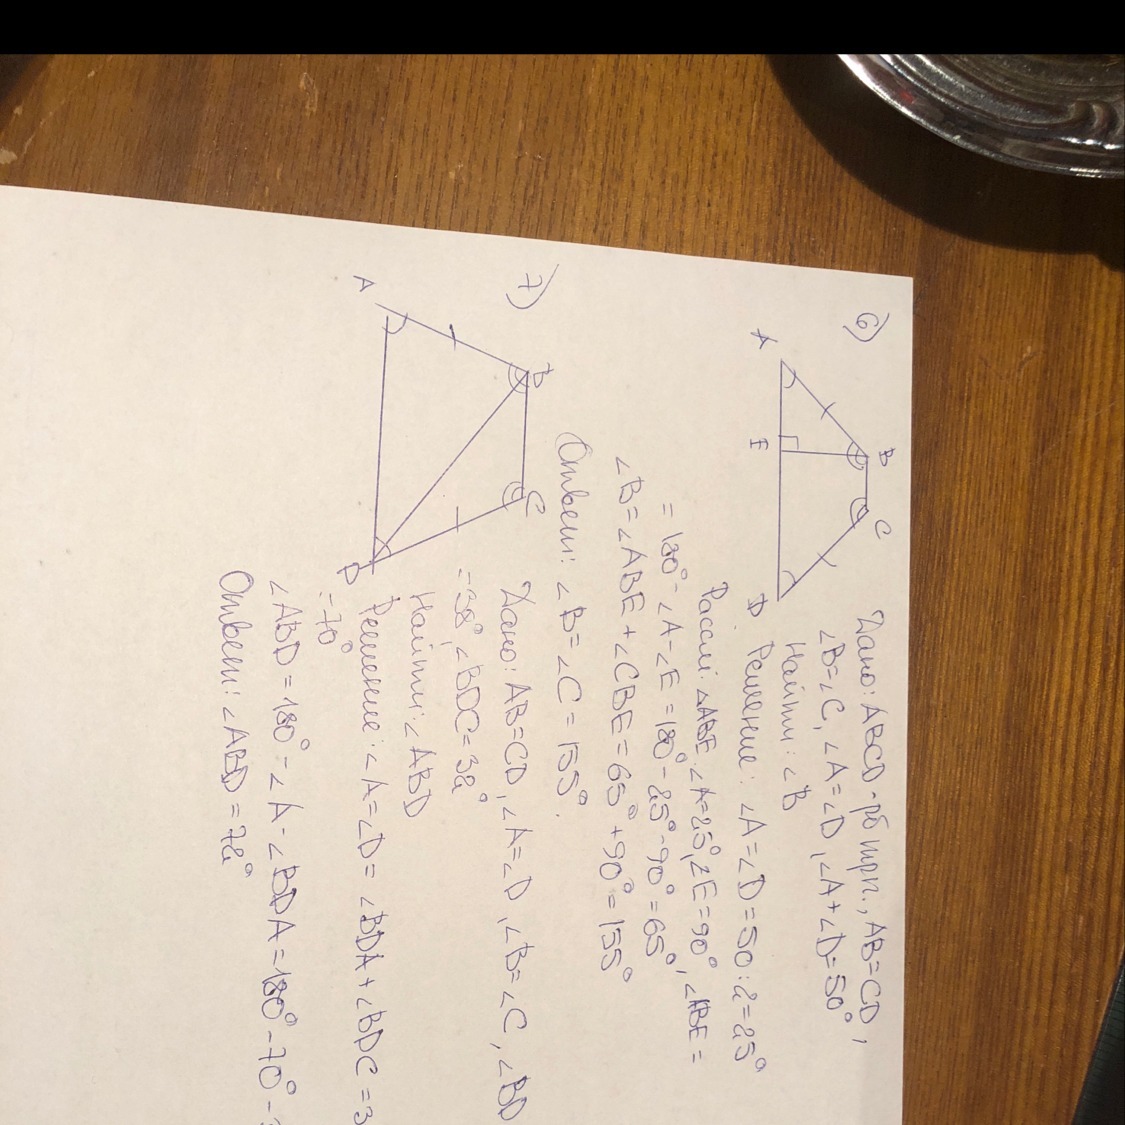 6)
A
B
C
D
E
Дано: ABCD - рб трп., AB=CD,
∠B=∠C, ∠A=∠D, ∠A+∠D=50°
Найти: ∠B
Решение: ∠A=∠D=50:2=25°
Рассм: △ABE. ∠A=25°, ∠E=90°, ∠ABE=
= 180°-∠A-∠E=180°-25°-90°=65°,
∠B=∠ABE+∠CBE=65°+90°=155°
Ответ: ∠B=∠C=155°.
7)
A
B
C
D
Дано: AB=CD, ∠A=∠D, ∠B=∠C, ∠BD
=38°, ∠BDC=32°
Найти: ∠ABD
Решение: ∠A=∠D=∠BDA+∠BDC=3
=70°
∠ABD=180°-∠A-∠BDA=180°-70°-
Ответ: ∠ABD=72°